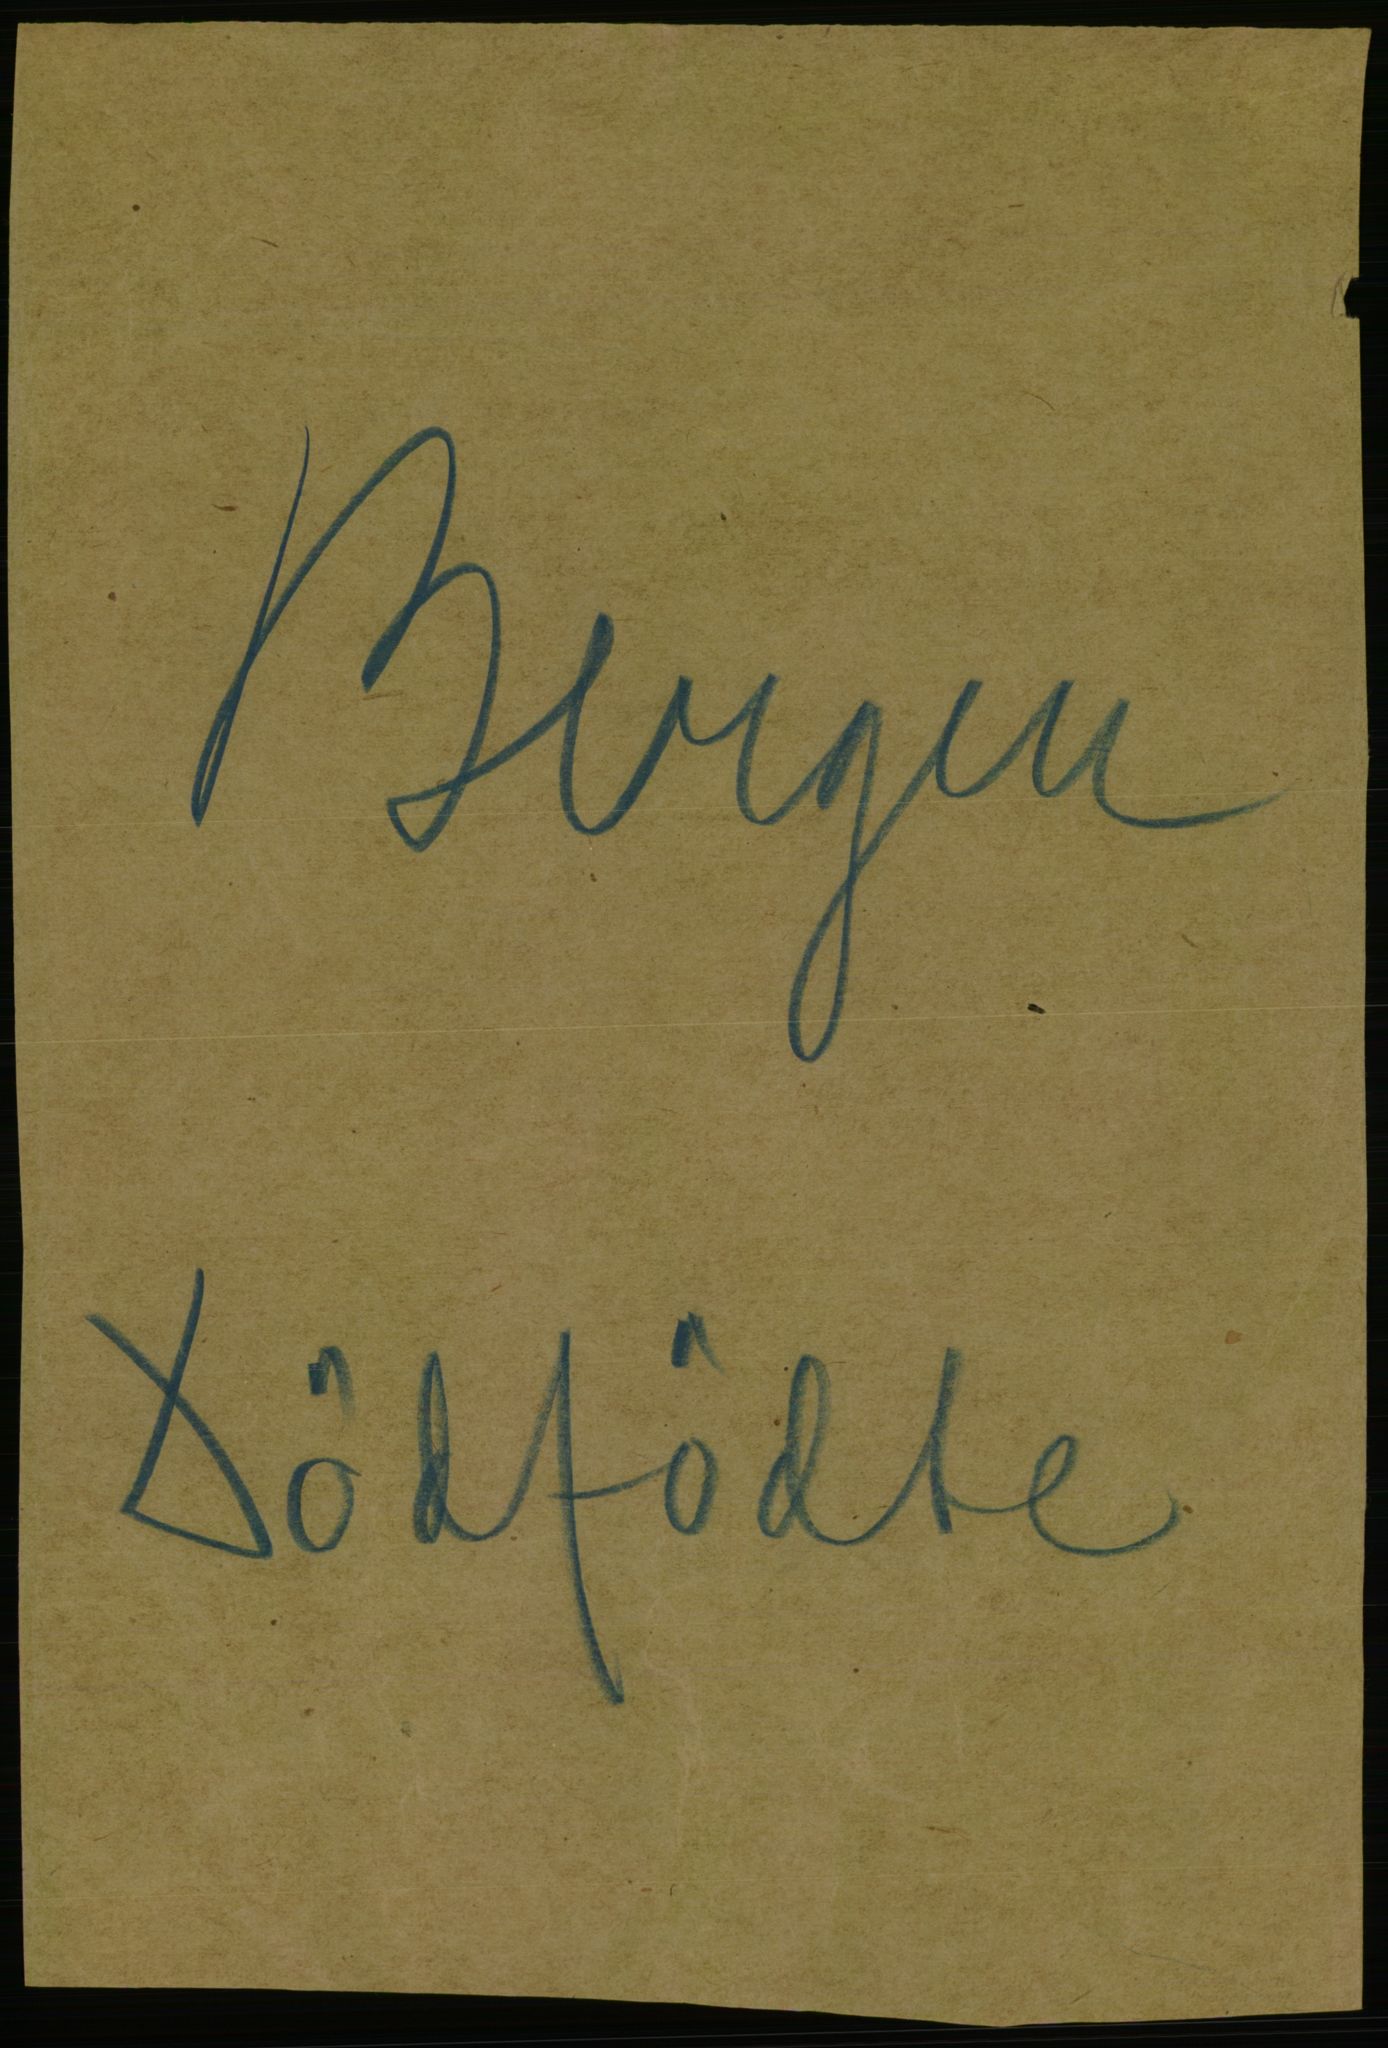 Bergen
Dödfödte